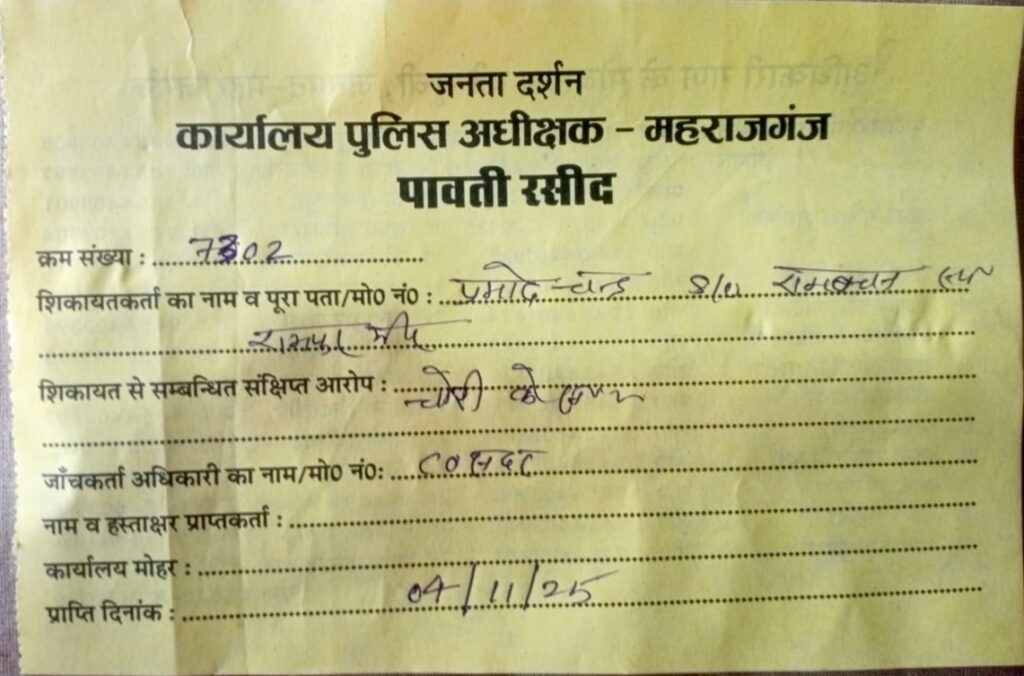 जनता दर्शन
कार्यालय पुलिस अधीक्षक - महराजगंज
पावती रसीद
क्रम संख्या : 7302
शिकायतकर्ता का नाम व पूरा पता/मो0 नं0 : प्रमोद चन्द S/O रामबचन
शिकायत से सम्बन्धित संक्षिप्त आरोप : चोरी के
जाँचकर्ता अधिकारी का नाम/मो0 नं0: CO सदर
नाम व हस्ताक्षर प्राप्तकर्ता :
कार्यालय मोहर :
प्राप्ति दिनांक : 04/11/25